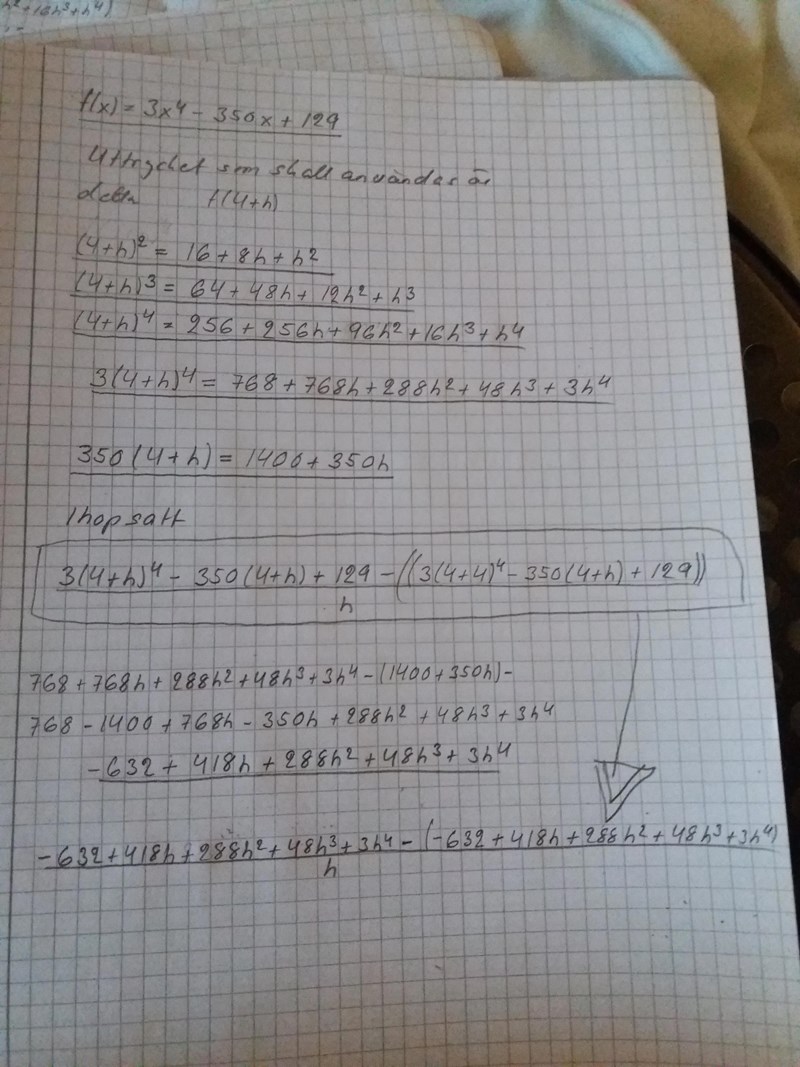 h²+16h³+h⁴)
f(x) = 3x⁴ - 350x + 129
Uttrycket som skall användas är
detta f(4+h)
(4+h)² = 16 + 8h + h²
(4+h)³ = 64 + 48h + 12h² + h³
(4+h)⁴ = 256 + 256h + 96h² + 16h³ + h⁴
3(4+h)⁴ = 768 + 768h + 288h² + 48h³ + 3h⁴
350(4+h) = 1400 + 350h
Ihopsatt
3(4+h)⁴ - 350(4+h) + 129 - ((3(4+4)⁴ - 350(4+h) + 129))
h
768 + 768h + 288h² + 48h³ + 3h⁴ - (1400 + 350h) -
768 - 1400 + 768h - 350h + 288h² + 48h³ + 3h⁴
-632 + 418h + 288h² + 48h³ + 3h⁴
-632 + 418h + 288h² + 48h³ + 3h⁴ - (-632 + 418h + 288h² + 48h³ + 3h⁴)
h